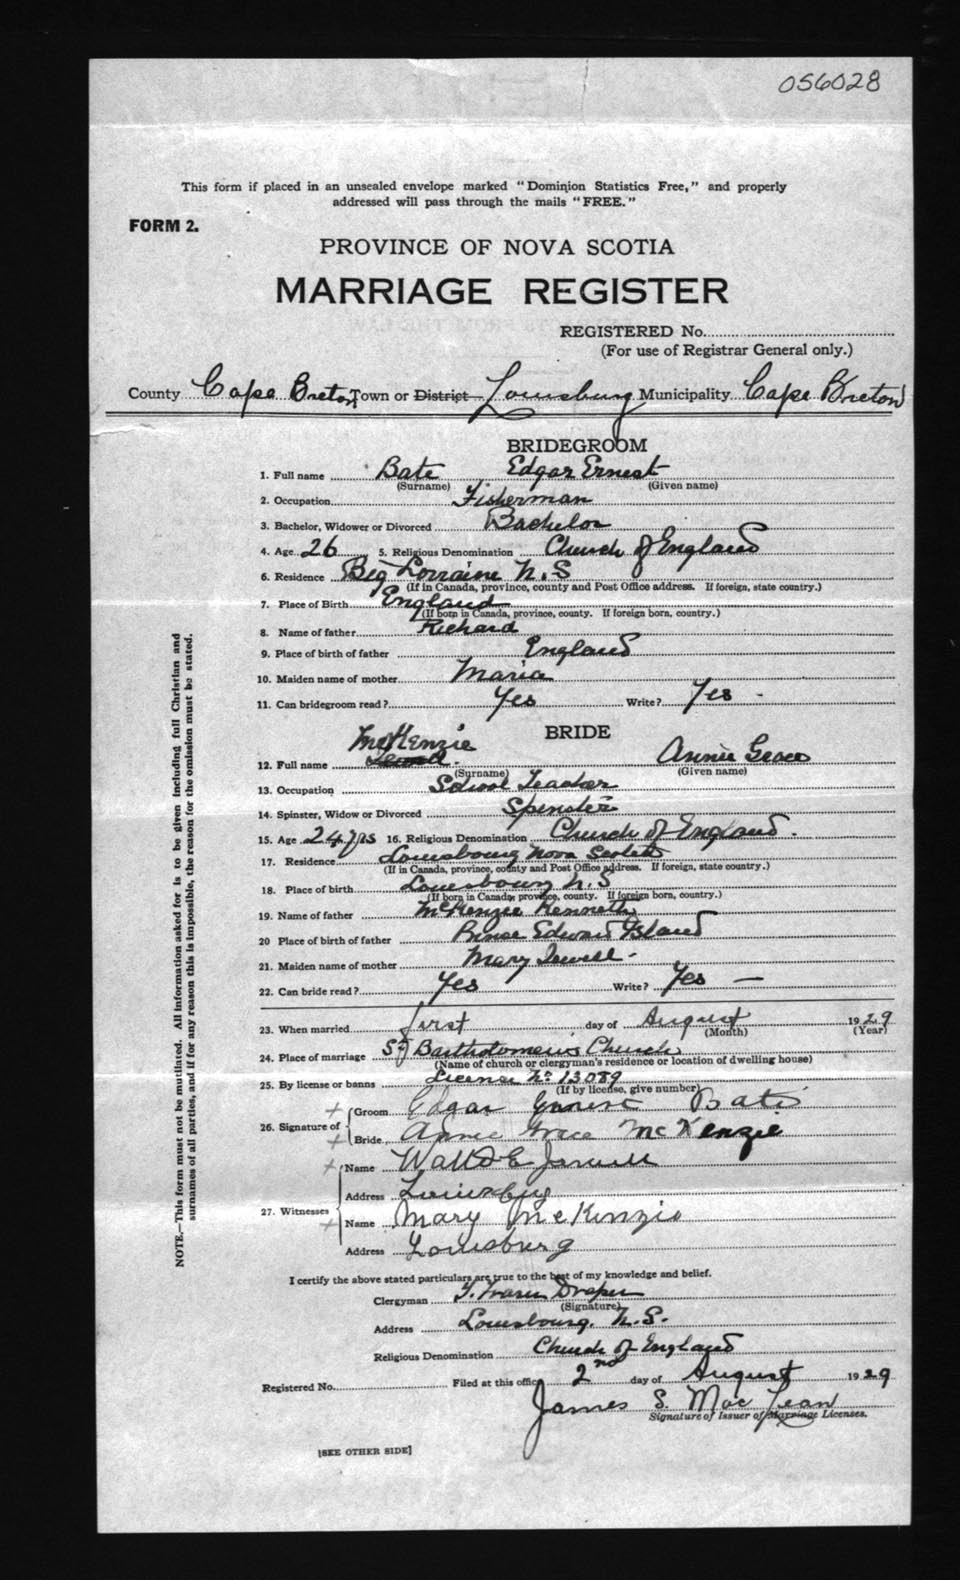 056028
This form if placed in an unsealed envelope marked "Dominion Statistics Free," and properly
addressed will pass through the mails "FREE."
FORM 2.
PROVINCE OF NOVA SCOTIA
MARRIAGE REGISTER
REGISTERED No.
(For use of Registrar General only.)
County Cape Breton Town or District Louisburg Municipality Cape Breton
BRIDEGROOM
1. Full name Bate Edgar Ernest
(Surname) (Given name)
2. Occupation Fisherman
3. Bachelor, Widower or Divorced Bachelor
4. Age 26 5. Religious Denomination Church of England
6. Residence Big Lorraine N.S
(If in Canada, province, county and Post Office address. If foreign, state country.)
7. Place of Birth England
(If born in Canada, province, county. If foreign born, country.)
8. Name of father Richard
9. Place of birth of father England
10. Maiden name of mother Maria
11. Can bridegroom read? Yes Write? Yes -
BRIDE
McKenzie
12. Full name Annie Grace
(Surname) (Given name)
13. Occupation School Teacher
14. Spinster, Widow or Divorced Spinster
15. Age 24 yrs 16. Religious Denomination Church of England.
17. Residence Louisbourg Nova Scotia
(If in Canada, province, county and Post Office address. If foreign, state country.)
18. Place of birth Louisbourg N.S
(If born in Canada, province, county. If foreign born, country.)
19. Name of father McKenzie Kenneth
20 Place of birth of father Prince Edward Island
21. Maiden name of mother Mary Jewell -
22. Can bride read? Yes Write? Yes —
23. When married first day of August 1929
(Month) (Year)
24. Place of marriage St Bartholomew's Church
(Name of church or clergyman's residence or location of dwelling house)
25. By license or banns License No 13089
(If by license, give number)
26. Signature of Groom Edgar Ernest Bate
Bride Annie Grace McKenzie
27. Witnesses Name E Jewell
Address Louisburg
Name Mary McKenzie
Address Louisburg
I certify the above stated particulars are true to the best of my knowledge and belief.
Clergyman T. Fraser Draper
(Signature)
Address Louisbourg. N.S.
Religious Denomination Church of England
Registered No. Filed at this office 2nd day of August 1929
James S. MacLean
Signature of Issuer of Marriage Licenses.
[SEE OTHER SIDE]
NOTE.—This form must not be mutilated. All information asked for is to be given including full Christian and
surnames of all parties, and if for any reason this is impossible, the reason for the omission must be stated.